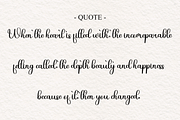 - QUOTE -
When the heart is filled with the incomparable
filling called the depth beauty and happiness
because of it then you changed.